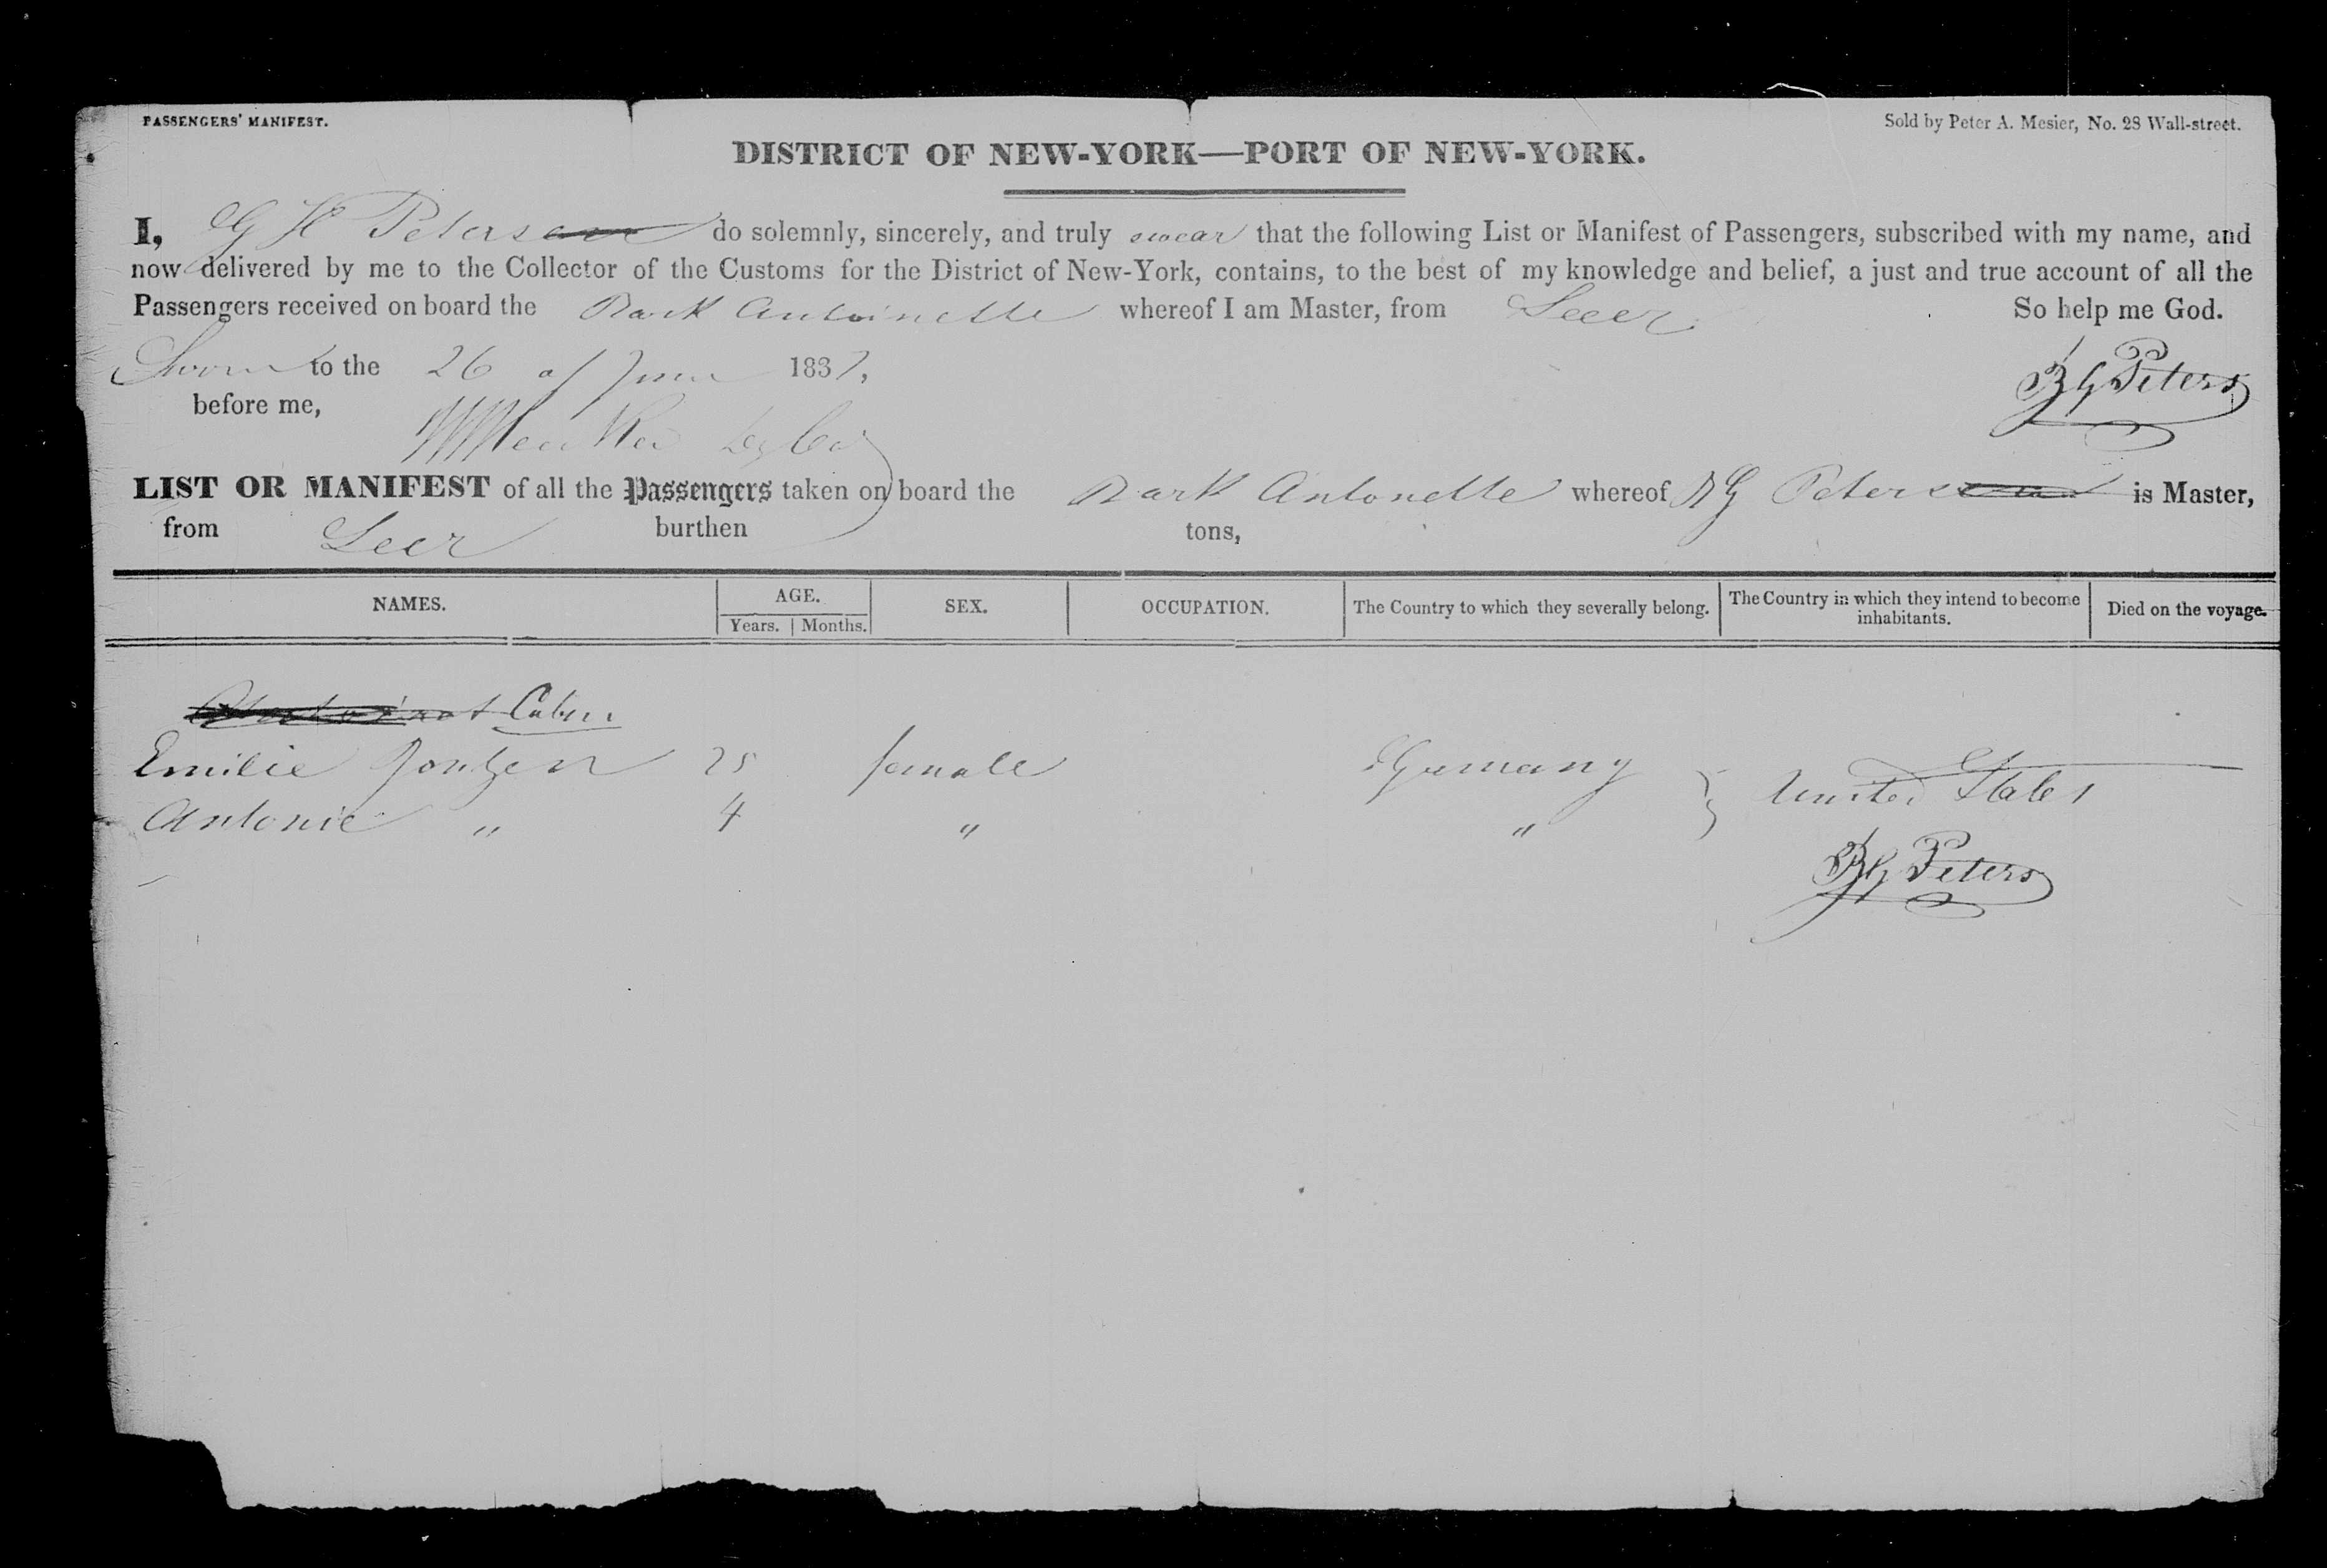 PASSENGERS' MANIFEST.
Sold by Peter A. Mesier, No. 28 Wall-street.
DISTRICT OF NEW-YORK—PORT OF NEW-YORK.
I, G H Peters do solemnly, sincerely, and truly swear that the following List or Manifest of Passengers, subscribed with my name, and
now delivered by me to the Collector of the Customs for the District of New-York, contains, to the best of my knowledge and belief, a just and true account of all the
Passengers received on board the Bark Antoinette whereof I am Master, from Leer So help me God.
Sworn to the 26 of June 1837,
B G Peters
before me,
LIST OR MANIFEST of all the Passengers taken on board the Bark Antonette whereof B G Peters is Master,
from Leer burthen tons,
NAMES. AGE. SEX. OCCUPATION. The Country to which they severally belong. The Country in which they intend to become inhabitants. Died on the voyage.
Years. Months.
Cabin
Emilie 25 female Germany United States
Antonie " 4 " "
B G Peters